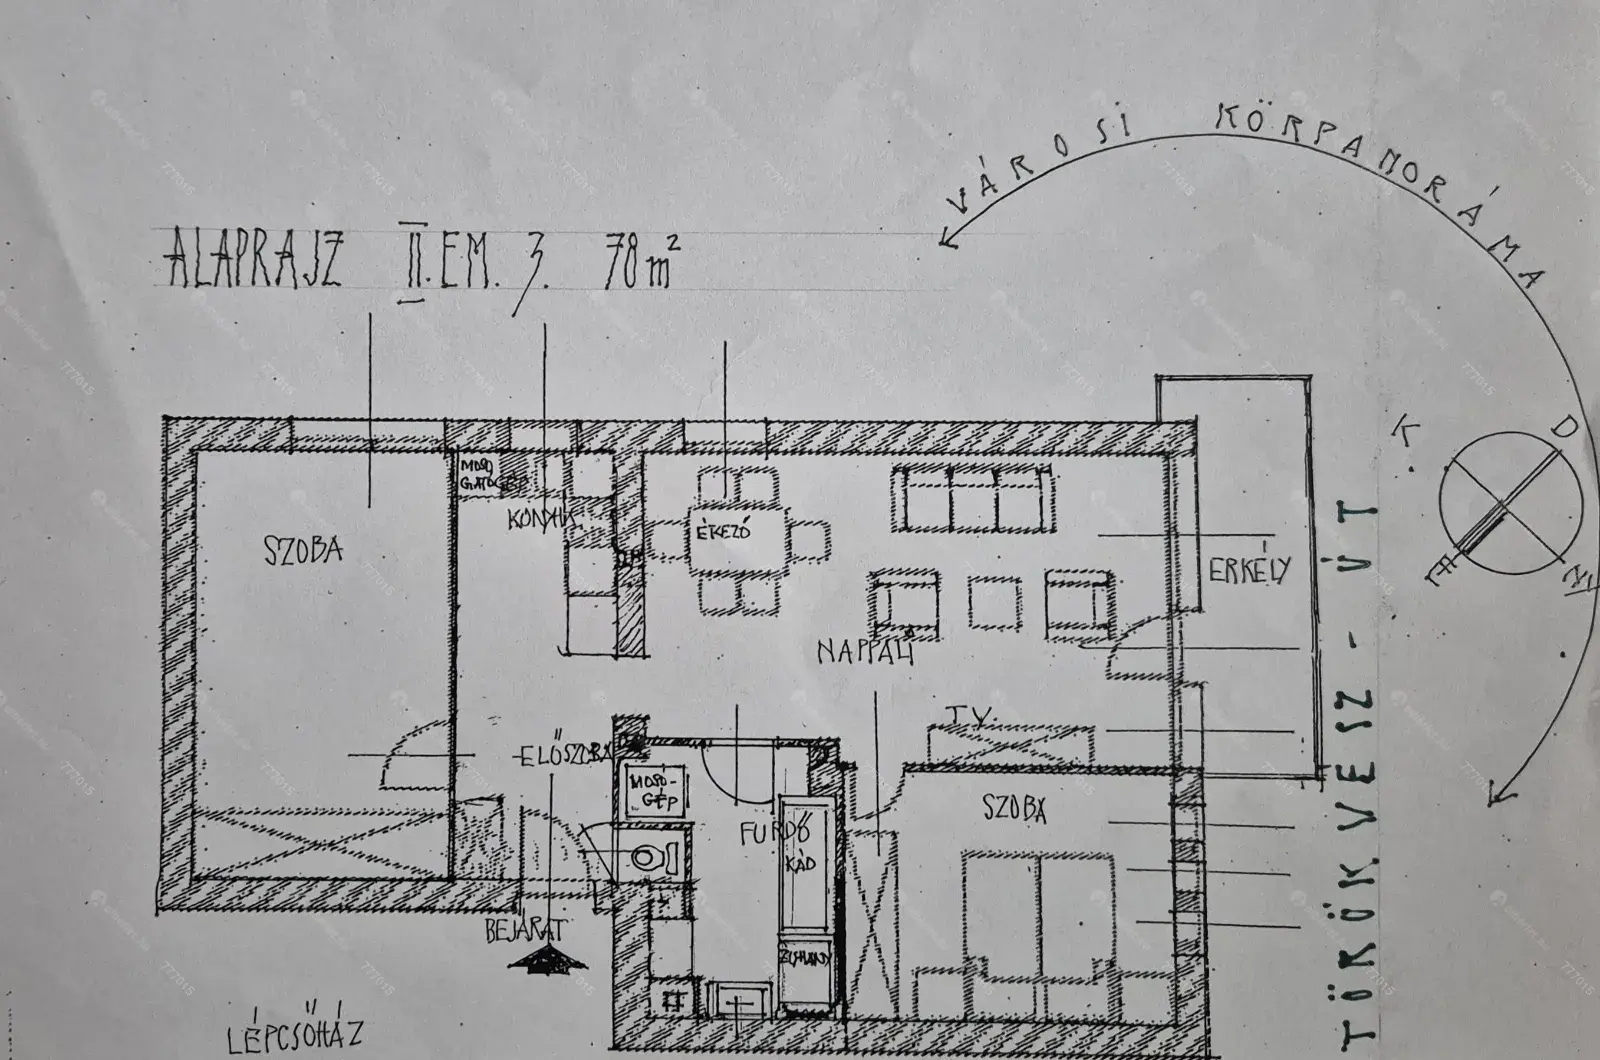 VÁROSI KÖRPANORÁMA
ALAPRAJZ II. EM. 3. 78 m²
K
D
É
NY
MOSO
GATÓGÉP
KONYHA
ÉTKEZŐ
SZOBA
ERKÉLY
NAPPALI
TV.
ELŐSZOBA
MOSÓ-
GÉP
FÜRDŐ
KÁD
SZOBA
BEJÁRAT
ZUHANY
LÉPCSŐHÁZ
TÖRÖKVÉSZ - ÚT
777015